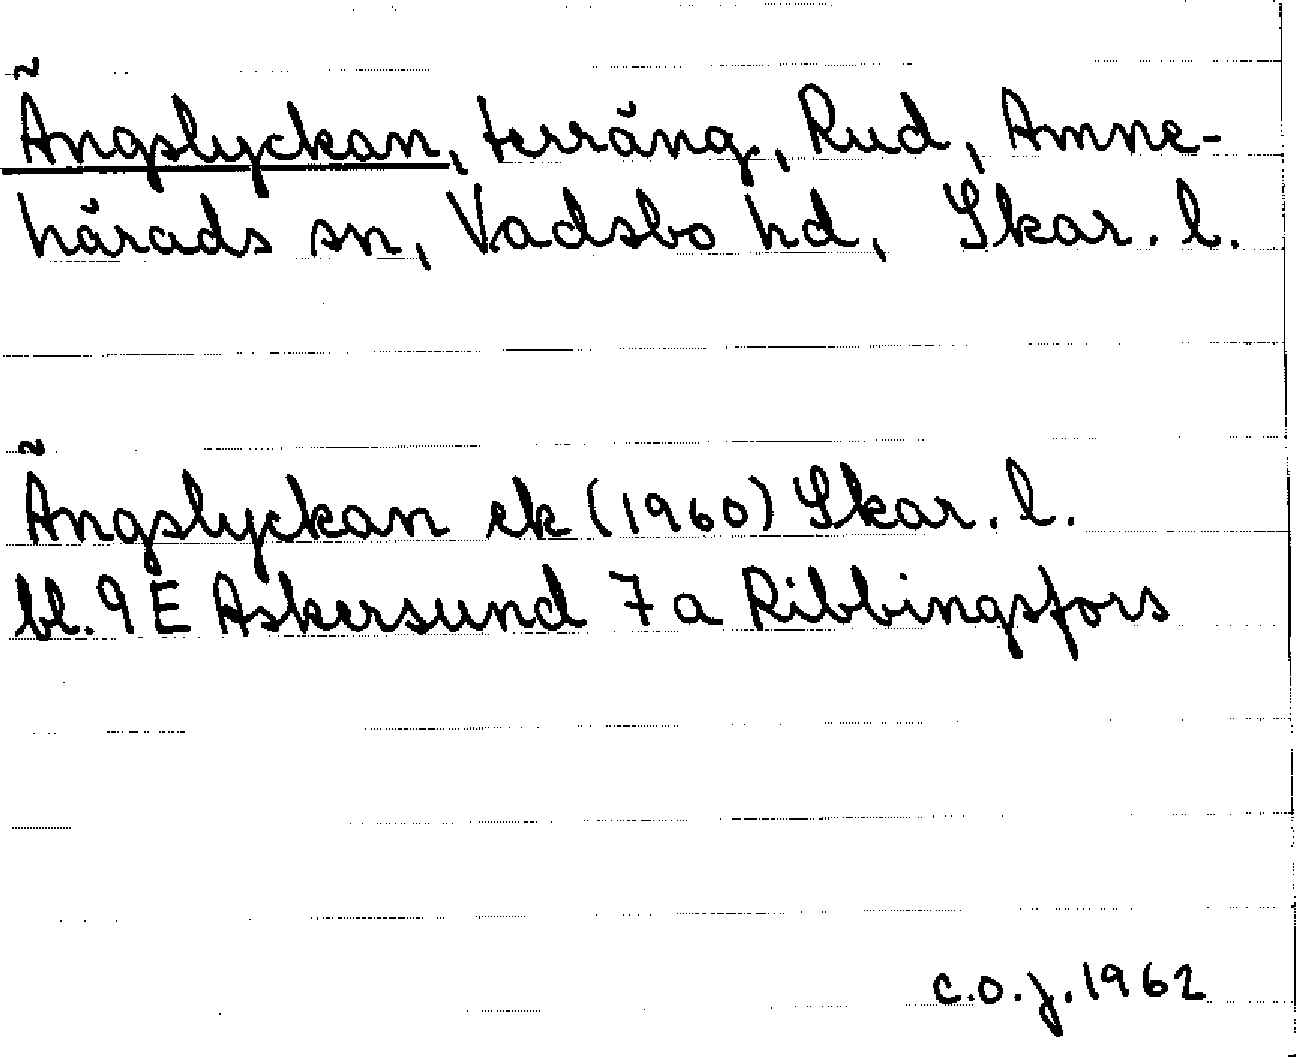 Ängslyckan, terräng, Rud, Amne-
härads sn, Vadsbo hd, Skar. l.
Ängslyckan ek (1960) Skar. l.
bl. 9 E Askersund 7 a Ribbingsfors
C.O.J. 1962